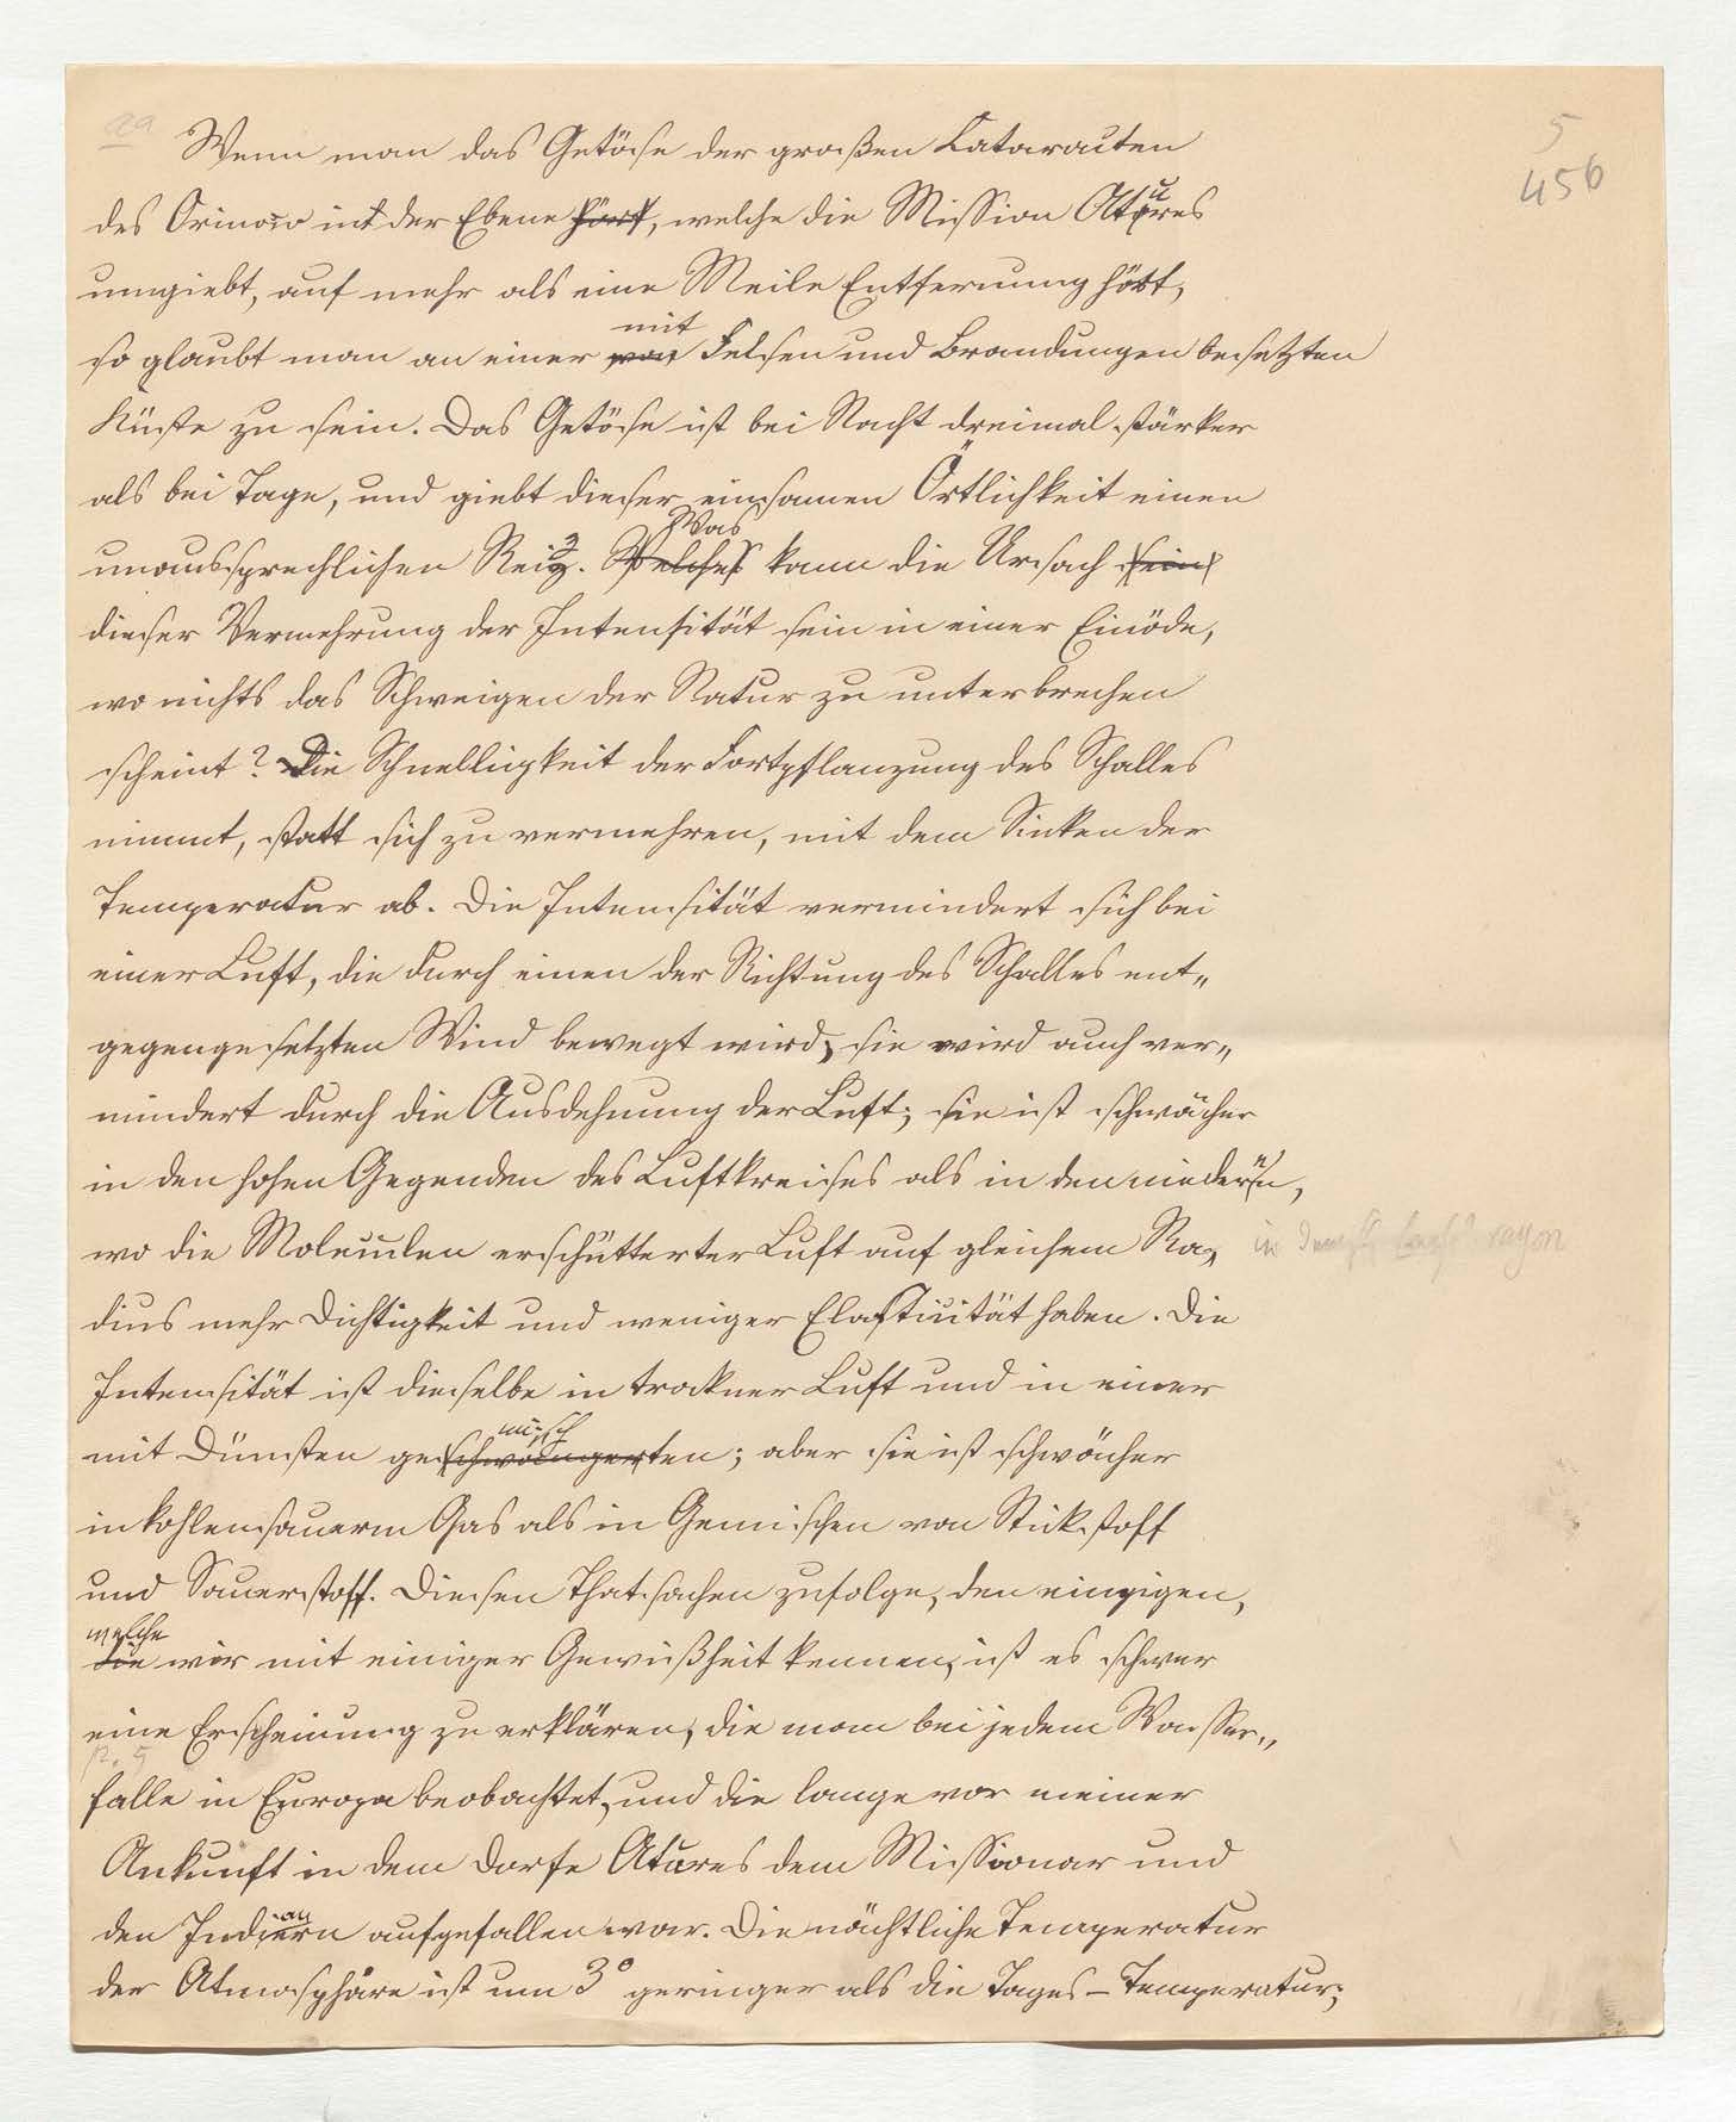 5
456
Wenn man das Getöse der großen Katarakten
des Orinoco in der Ebene hört, welche die Mission Atures
umgiebt, auf mehr als eine Meile Entfernung hört,
mit
so glaubt man an einer von Felsen und Brandungen besetzten
Küste zu sein. Das Getöse ist bei Nacht dreimal stärker
als bei Tage, und giebt dieser einsamen Örtlichkeit einen
Was
unaussprechlichen Reiz. Welches kann die Ursach sein
dieser Vermehrung der Intensität sein in einer Einöde,
wo nichts das Schweigen der Natur zu unterbrechen
scheint? Die Schnelligkeit der Fortpflanzung des Schalles
nimmt, statt sich zu vermehren, mit dem Sinken der
Temperatur ab. Die Intensität vermindert sich bei
einer Luft, die durch einen der Richtung des Schalles ent„
gegengesetzten Wind bewegt wird, sie wird auch ver„
mindert durch die Ausdehnung der Luft; sie ist schwächer
in den hohen Gegenden des Luftkreises als in den niedern,
wo die Moleculen erschütterter Luft auf gleichem Ra„
dius mehr Dichtigkeit und weniger Elasticität haben. Die
Intensität ist dieselbe in trockner Luft und in einer
misch
mit Dünsten geschwängerten; aber sie ist schwächer
in kohlensauerm Gas als in Gemischen von Stickstoff
und Sauerstoff. Diesen Thatsachen zufolge, den einzigen,
welche
die wir mit einiger Gewißheit kennen, ist es schwer
eine Erscheinung zu erklären, die man bei jedem Wasser„
falle in Europa beobachtet, und die lange vor meiner
Ankunft in dem Dorfe Atures dem Missionar und
an
den Indiern aufgefallen war. Die nächtliche Temperatur
der Atmosphäre ist um 3° geringer als die Tages-Temperatur;